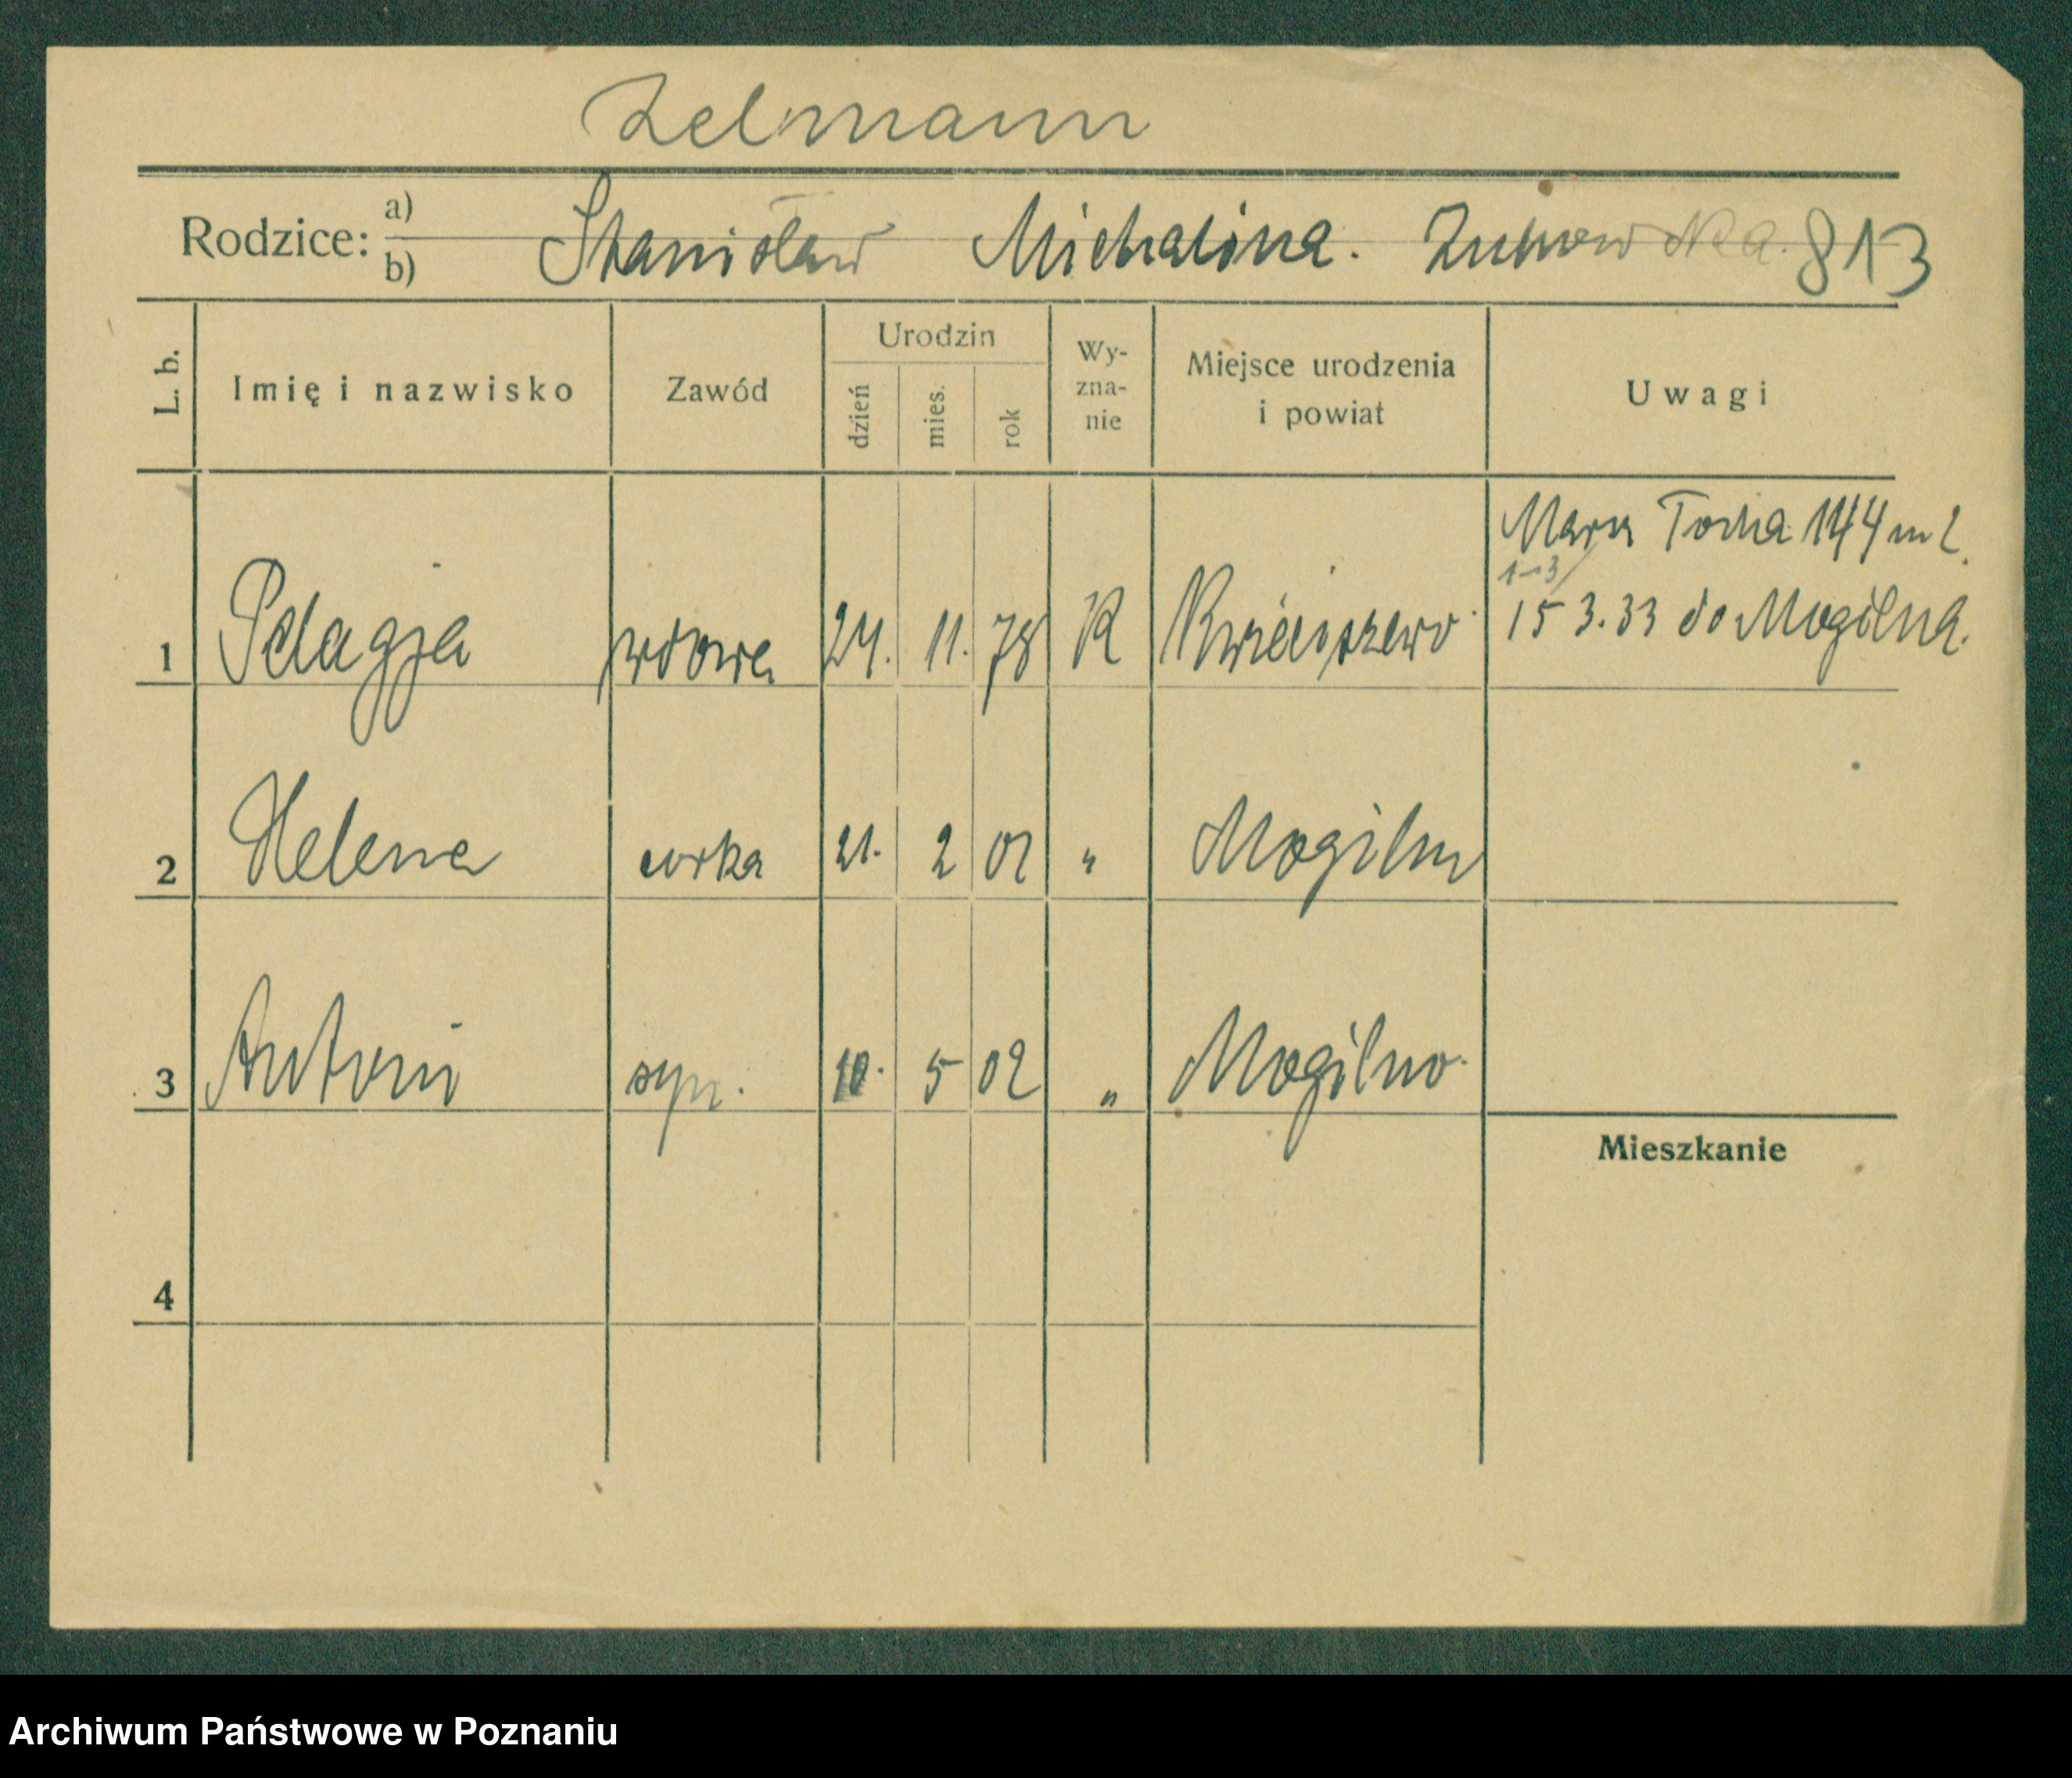 Zelmann
Rodzice: a) b) Stanisław Michalina. Żuchowska. 813
L. b. Imię i nazwisko Zawód Urodzin dzień mies. rok Wy-zna-nie Miejsce urodzenia i powiat Uwagi
144 m 2.
1-3/
1 Pelagja wdowa 24. 11. 78 K Kwieciszewo. 15 3.33 do Mogilna.
2 Helena corka 21. 2 01 " Mogilno
3 Antoni syn. 10. 5 02 " Mogilno.
Mieszkanie
4
Archiwum Państwowe w Poznaniu